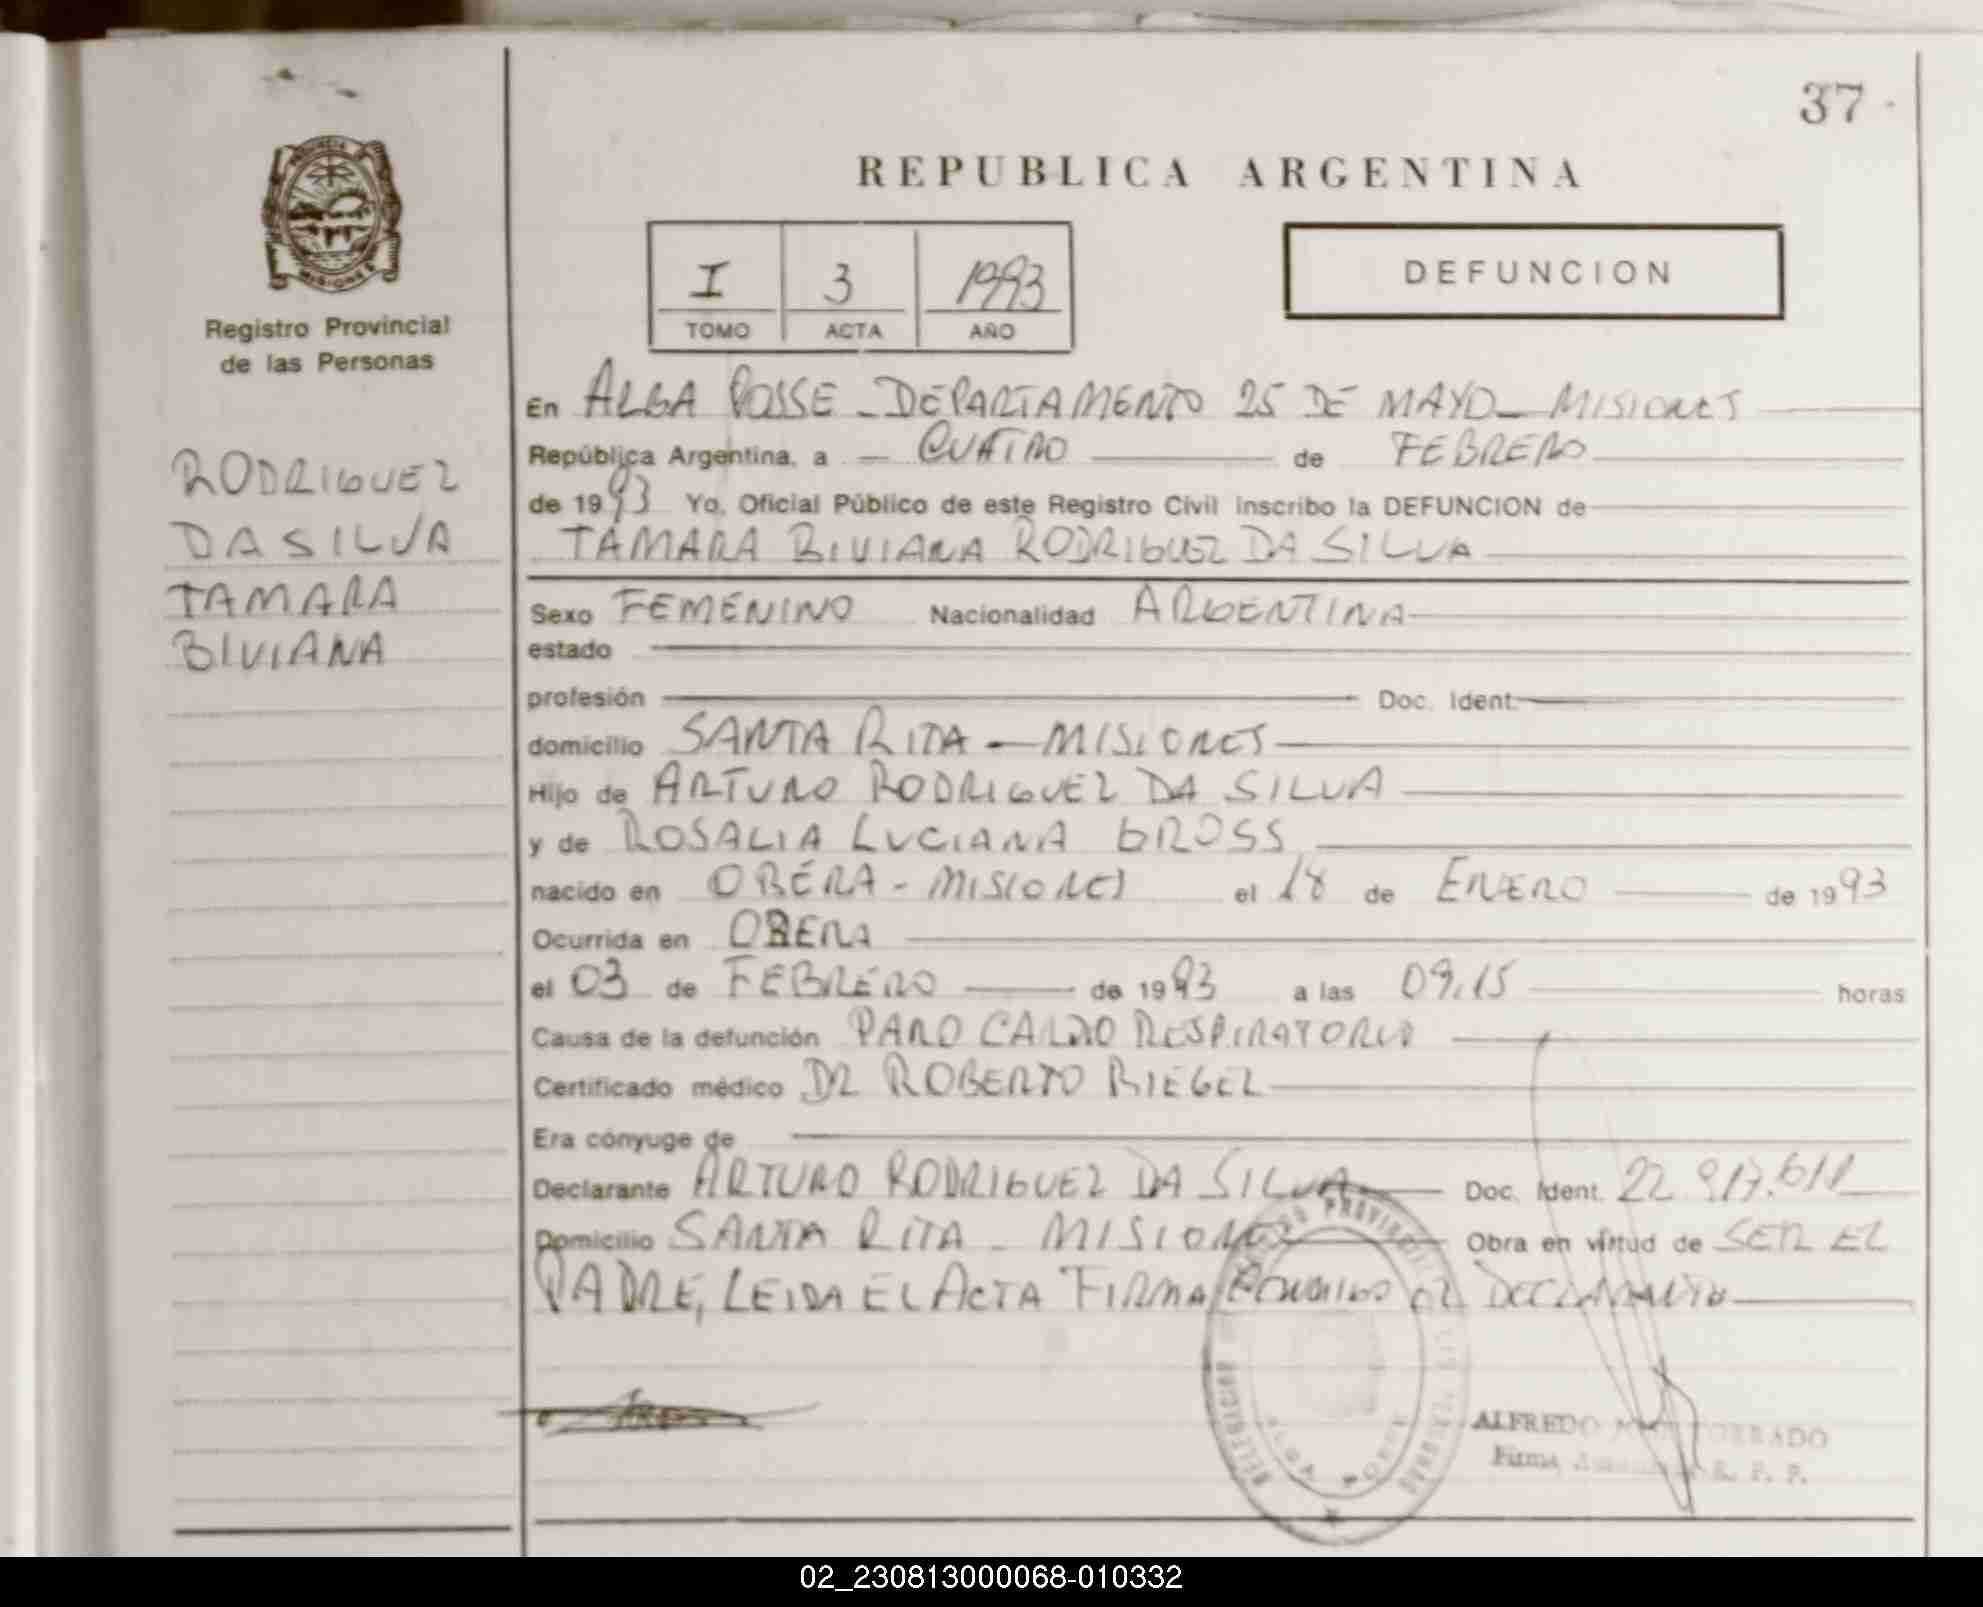 37
REPUBLICA ARGENTINA
PROVINCIA DE
MISIONES
Registro Provincial
de las Personas
I 3 1993
TOMO ACTA AÑO
DEFUNCION
RODRIGUEZ
DA SILVA
TAMARA
BIVIANA
En ALBA POSSE - DEPARTAMENTO 25 DE MAYO - MISIONES
República Argentina, a CUATRO de FEBRERO
de 1993 Yo, Oficial Público de este Registro Civil inscribo la DEFUNCION de
TAMARA BIVIANA RODRIGUEZ DA SILVA
Sexo FEMENINO Nacionalidad ARGENTINA
estado
profesión Doc. Ident.
domicilio SANTA RITA - MISIONES
Hijo de ARTURO RODRIGUEZ DA SILVA
y de ROSALIA LUCIANA GROSS
nacido en OBERA - MISIONES el 18 de ENERO de 1993
Ocurrida en OBERA
el 03 de FEBRERO de 1993 a las 09,15 horas
Causa de la defunción PARO CARDO RESPIRATORIO
Certificado médico DR ROBERTO RIEGEL
Era cónyuge de
Declarante ARTURO RODRIGUEZ DA SILVA Doc. Ident. 22.917.611
Domicilio SANTA RITA - MISIONES Obra en virtud de SER EL
PADRE, LEIDA EL ACTA FIRMA CONMIGO EL DECLARANTE
ALBA POSSE
ALFREDO JOSE TORRADO
Firma R. P. P.
02_230813000068-010332